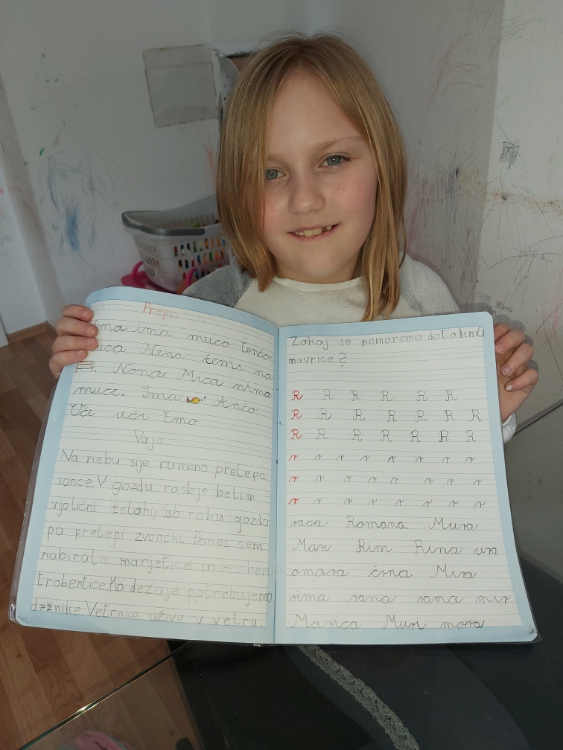 Prepis
ima ima muco Tenčo
uca Nena temi na
Nona Mica nima
muce. Ima Tinčo
Oči uči Emo
Vaja
Na nebu sije rumano prelepo
sonce. V gozdu rasteje beli in
vijolični žefani, ob robu gozda
pa prelepi zvončki, danes sem
nabirala marjetice in
trobentice. Ko dežuje potrebujemo
dežnike. Vetrnica oživa v vetru.
Zakaj se nemoremo dotakniti
mavrice?
R R R R R R
R R R R R R R
R R R R R R R
r r r r r r r r r
r r r r r r r r
r r r r r r r r
raca Romana Mura
Mar Rim Rina ura
omara črna Mira
rima rana rana mir
Marica Muri mora